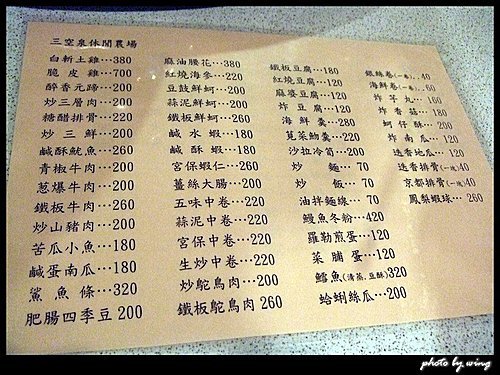 三空泉休閒農場
白斬土雞…380
脆皮雞…700
醉香元蹄…200
炒三層肉…200
糖醋排骨…220
炒三鮮…200
鹹酥魷魚…260
青椒牛肉…200
蔥爆牛肉…200
鐵板牛肉…260
炒山豬肉…200
苦瓜小魚…180
鹹蛋南瓜…180
鯊魚條…320
肥腸四季豆200
麻油腰花…380
紅燒海參…220
豆鼓鮮蚵…200
蒜泥鮮蚵…200
鐵板鮮蚵…260
鹹水蝦…180
鹹酥蝦…180
宮保蝦仁…260
薑絲大腸…200
五味中卷…220
蒜泥中卷…220
宮保中卷…220
生炒中卷…220
炒鴕鳥肉…200
鐵板鴕鳥肉260
鐵板豆腐…180
紅燒豆腐…120
麻婆豆腐…120
炸豆腐…120
海鮮羹…280
莧菜魩…220
沙拉冷筍…200
炒麵…70
炒飯…70
油拌麵線…70
鰻魚冬粉…420
羅勒煎蛋…120
菜脯蛋…120
鱈魚(清蒸.豆酥)320
蛤蜊絲瓜…200
銀絲卷(一卷).40
海鮮卷(一卷).60
炸芋丸…160
炸香菇…180
蚵仔酥…200
炸南瓜…120
迷香地瓜…120
迷香排骨(一塊)40
京都排骨(一塊)40
鳳梨蝦球…260
photo by wing